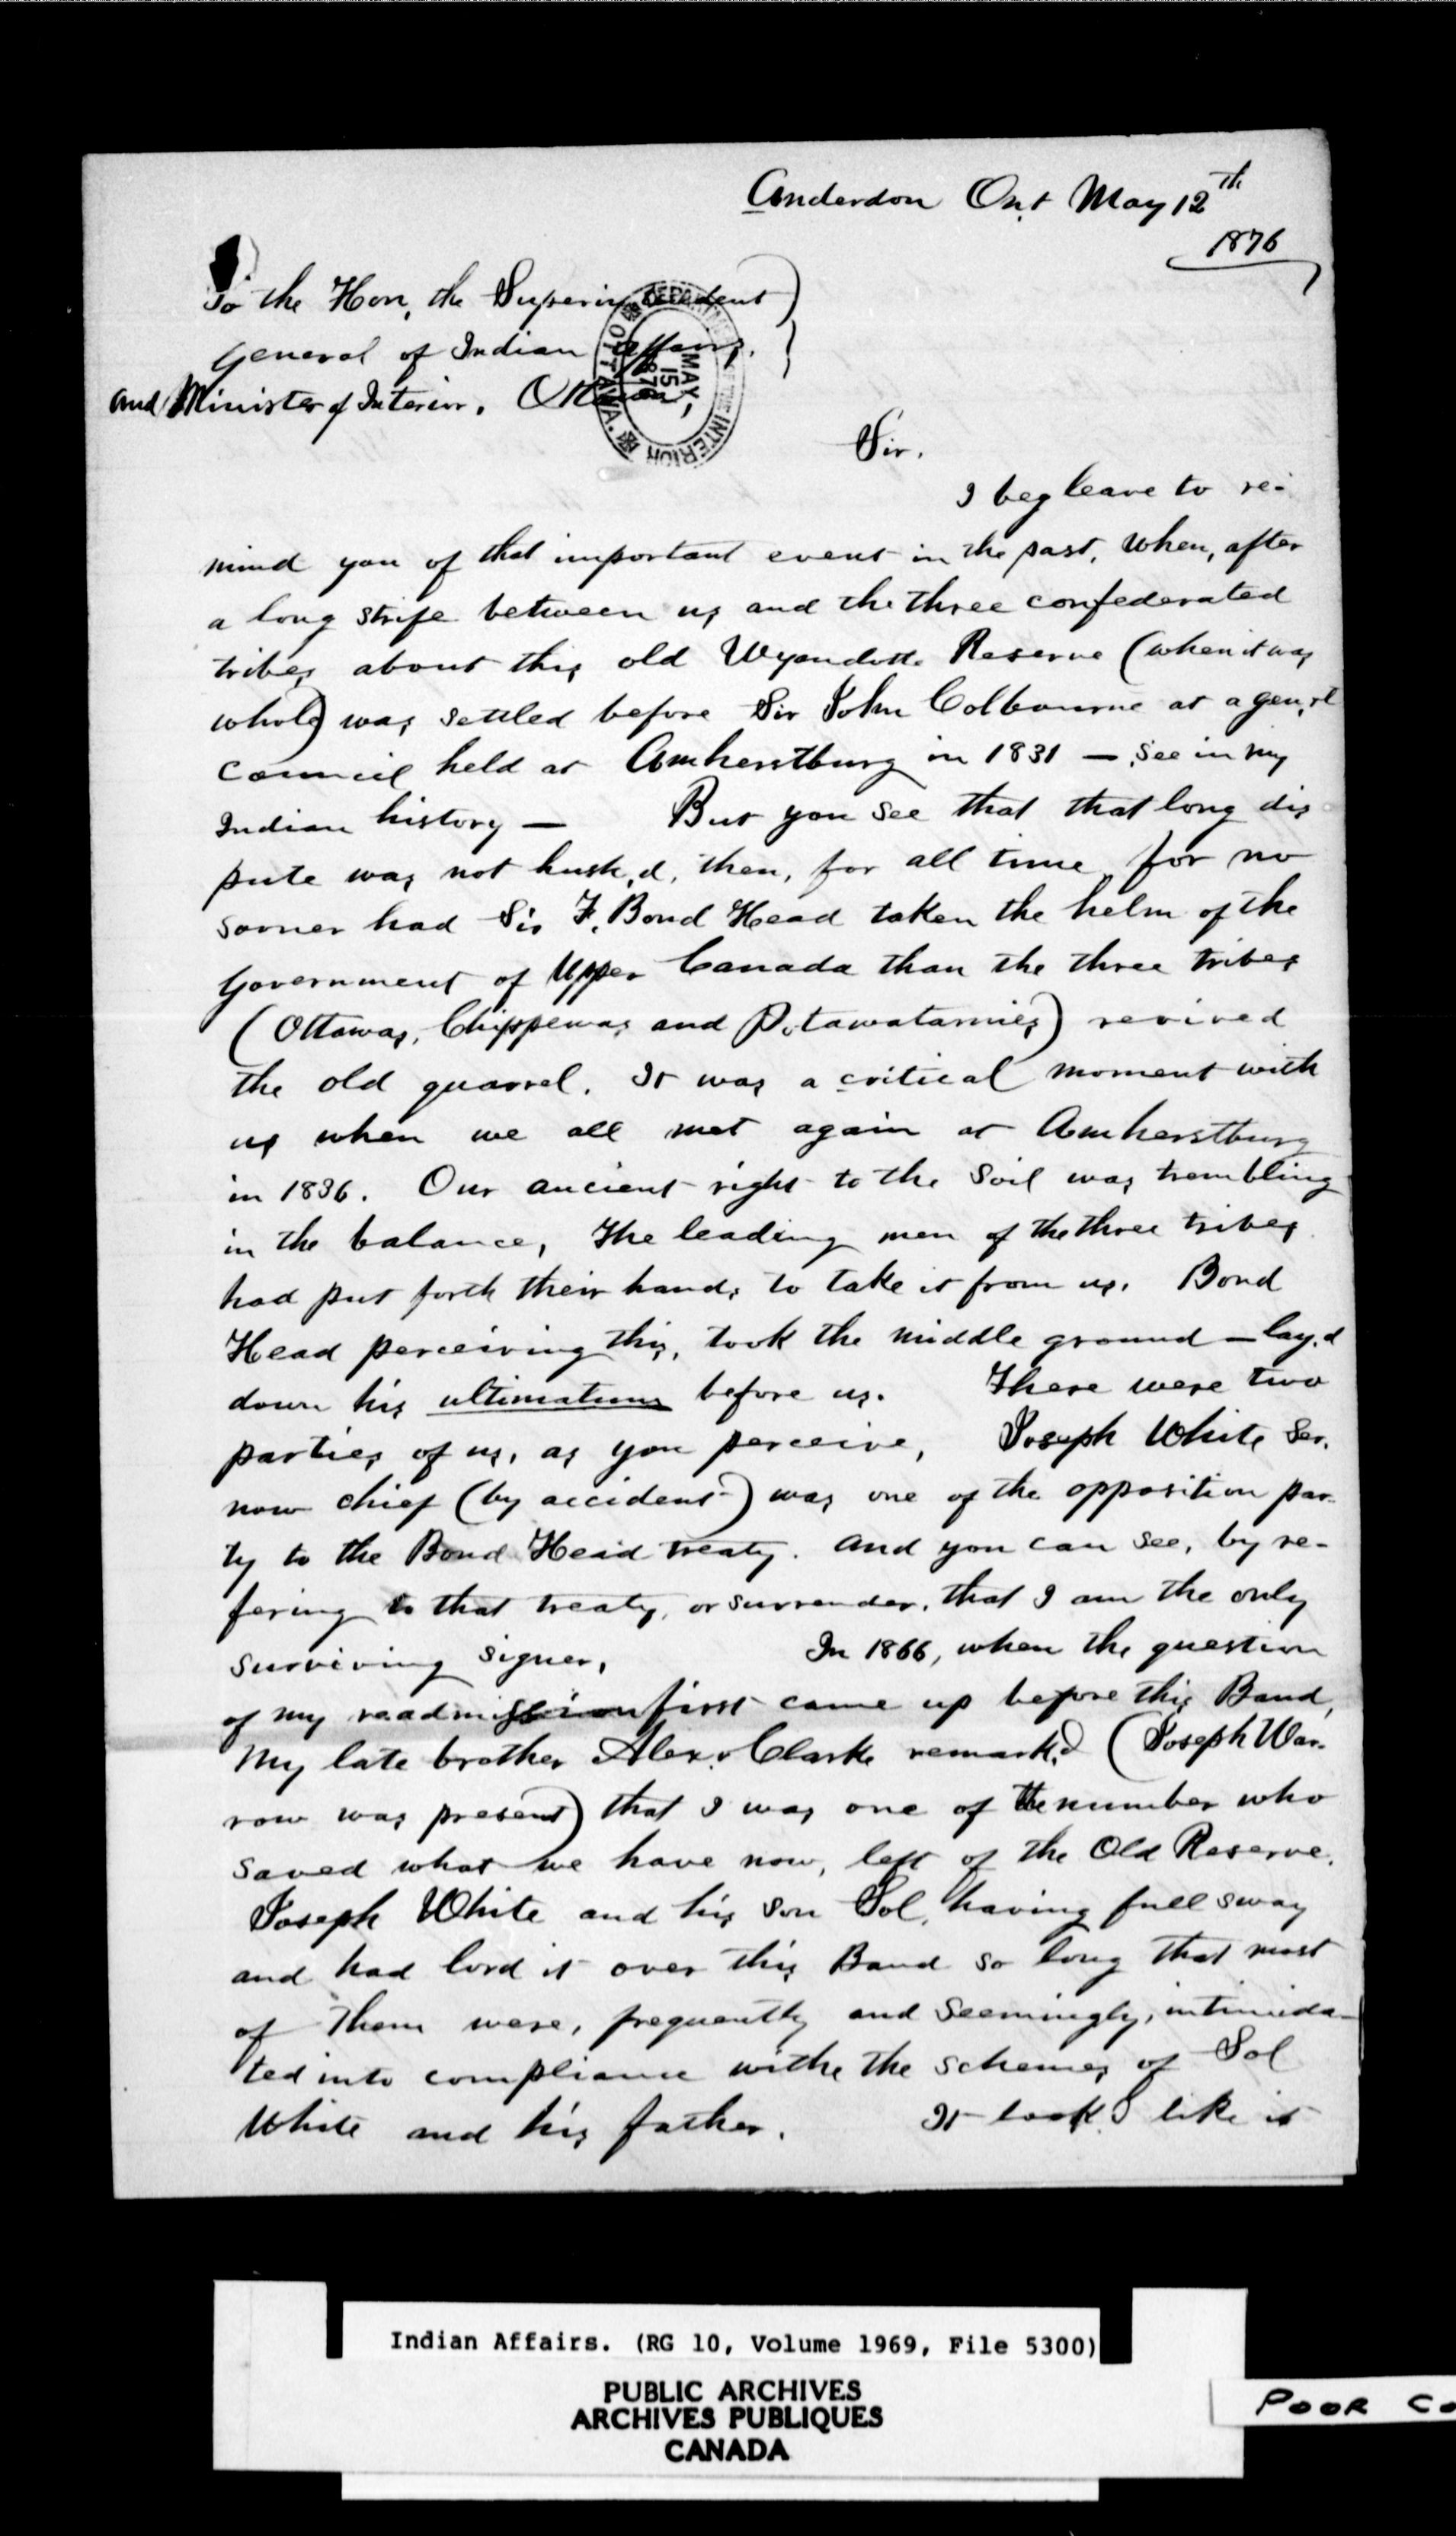 Anderdon Ont May 12th
1876
To the Hon, the Superintendent
General of Indian Affairs.
and Minister of Interior. Ottawa
DEPARTMENT OF THE INTERIOR
MAY 15 1876
OTTAWA.
Sir.
I beg leave to re-
mind you of that important event in the past, when, after
a long strife between us and the three confederated
tribes about this old Wyandotte Reserve (when it was
whole) was settled before Sir John Colbourne at a gen,rl
council held at Amherstburg in 1831 — see in my
Indian history — But you see that that long dis
pute was not hush,d, then, for all time for no
sooner had Sir F. Bond Head taken the helm of the
Government of Upper Canada than the three tribes
(Ottawas, Chippewas and Potawatamies) revived
the old quarrel. It was a critical moment with
us when we all met again at Amherstburg
in 1836. Our ancient right to the soil was trembling
in the balance, The leading men of the three tribes
had put forth their hands to take it from us. Bond
Head perceiving this, took the middle ground — lay,d
down his ultimatum before us. There were two
parties of us, as you perceive, Joseph White Ser.
now chief (by accident) was one of the opposition par-
ty to the Bond Head treaty. And you can see, by re-
fering to that treaty, or surrender, that I am the only
surviving signer, In 1866, when the question
of my readmission first came up before this Band,
My late brother Alex. Clarke remark,d (Joseph War-
row was present) that I was one of the number who
saved what we have now, left of the Old Reserve.
Joseph White and his son Sol, having full sway
and had lord it over this Band so long that most
of them were, frequently and seemingly, intimida-
ted into compliance withe the schemes of Sol
White and his father. It look,d like it
Indian Affairs. (RG 10, Volume 1969, File 5300)
PUBLIC ARCHIVES
ARCHIVES PUBLIQUES
CANADA
POOR CO